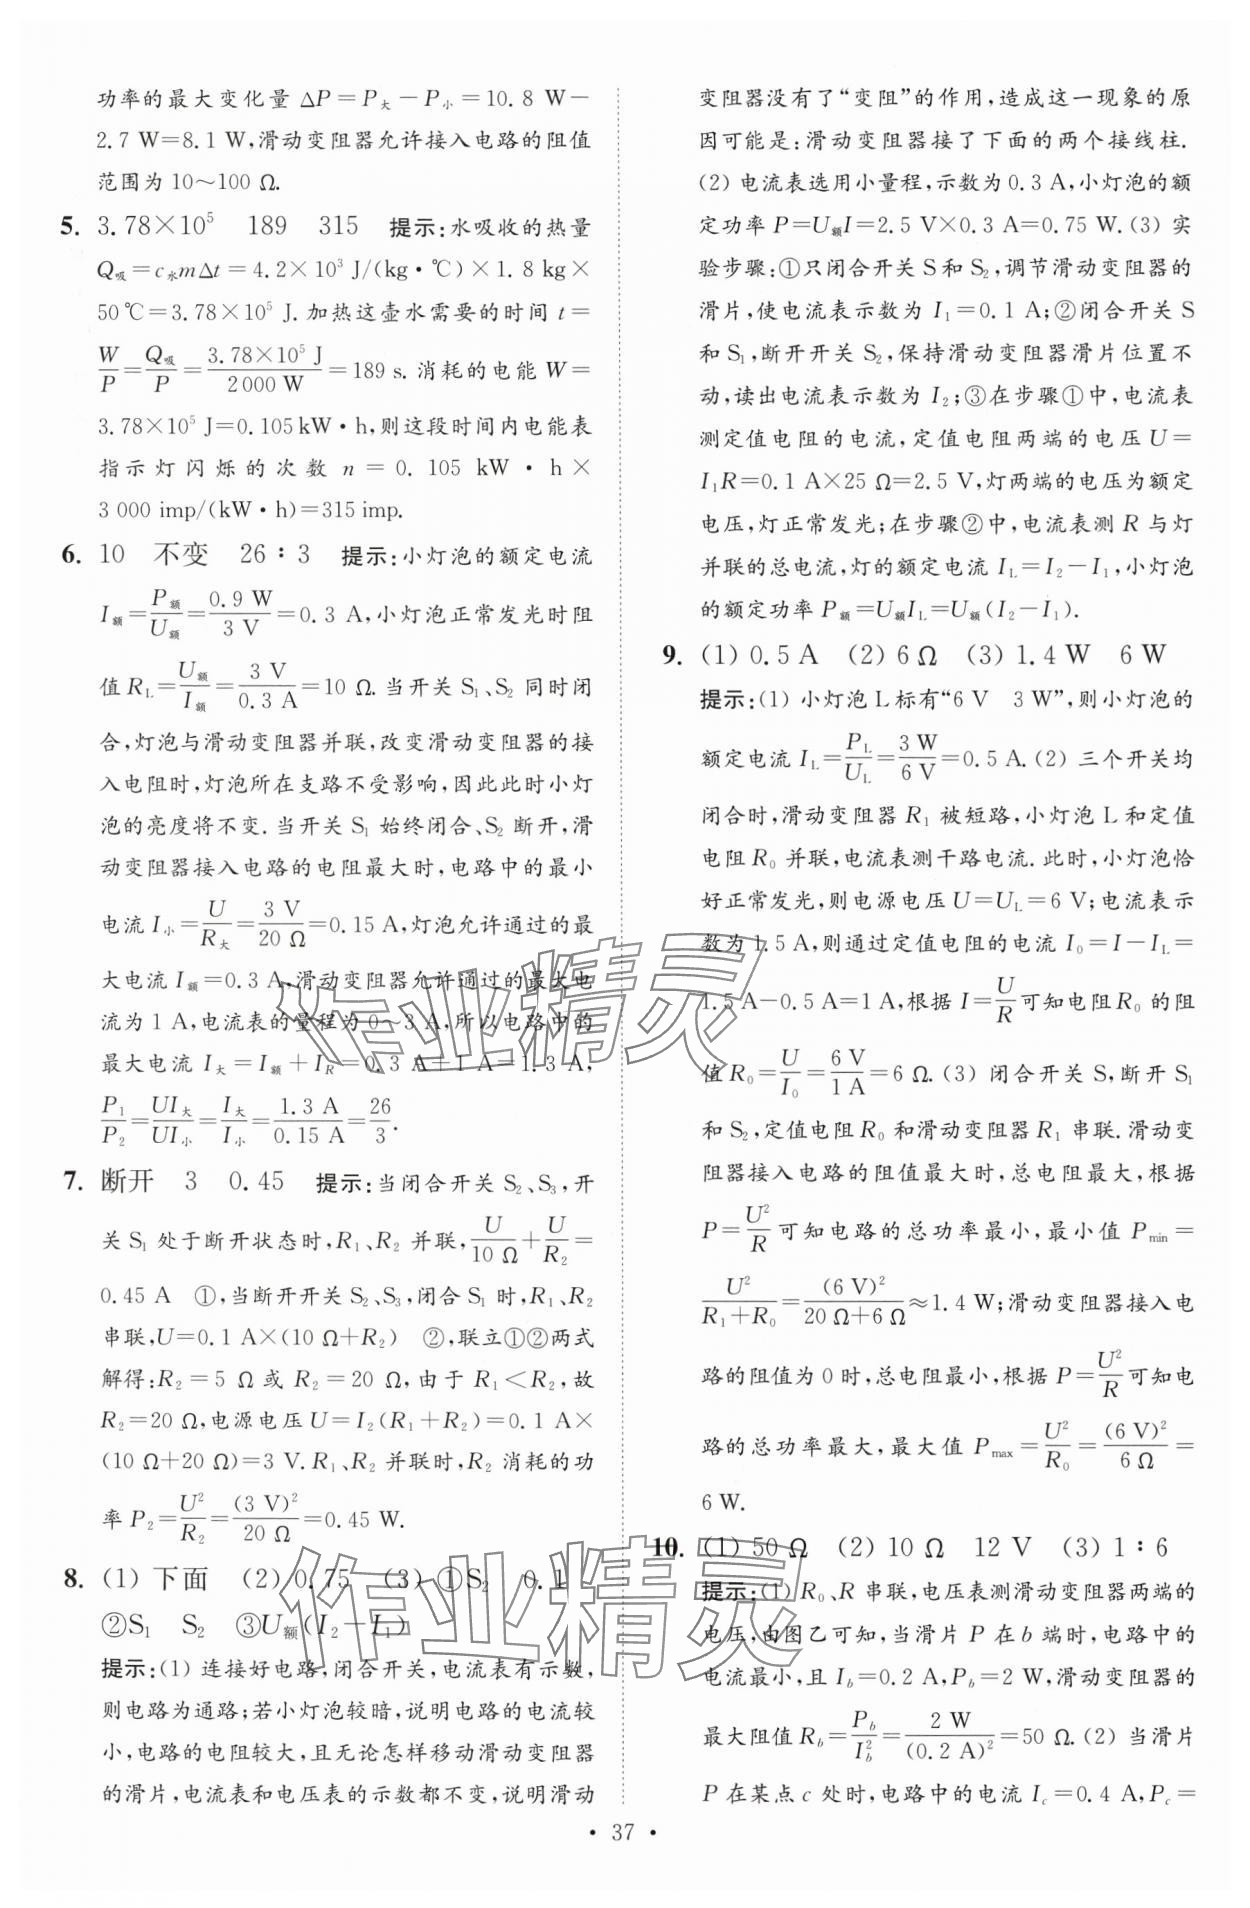 功率的最大变化量 ΔP=P大-P小=10.8 W-
2.7 W=8.1 W,滑动变阻器允许接入电路的阻值
范围为 10～100 Ω.
5. 3.78×10⁵ 189 315 提示:水吸收的热量
Q吸=c水mΔt=4.2×10³ J/(kg·℃)×1.8 kg×
50℃=3.78×10⁵ J.加热这壶水需要的时间 t=
W/P=Q吸/P=3.78×10⁵ J/2 000 W=189 s.消耗的电能 W=
3.78×10⁵ J=0.105 kW·h,则这段时间内电能表
指示灯闪烁的次数 n=0.105 kW·h×
3 000 imp/(kW·h)=315 imp.
6. 10 不变 26∶3 提示:小灯泡的额定电流
I额=P额/U额=0.9 W/3 V=0.3 A,小灯泡正常发光时阻
值 R_L=U额/I额=3 V/0.3 A=10 Ω.当开关 S₁、S₂ 同时闭
合,灯泡与滑动变阻器并联,改变滑动变阻器的接
入电阻时,灯泡所在支路不受影响,因此此时小灯
泡的亮度将不变.当开关 S₁ 始终闭合、S₂ 断开,滑
动变阻器接入电路的电阻最大时,电路中的最小
电流 I小=U/R大=3 V/20 Ω=0.15 A,灯泡允许通过的最
大电流 I额=0.3 A,滑动变阻器允许通过的最大电
流为 1 A,电流表的量程为 0～3 A,所以电路中的
最大电流 I大=I额+I_R=0.3 A+1 A=1.3 A,
P₁/P₂=UI大/UI小=I大/I小=1.3 A/0.15 A=26/3.
7. 断开 3 0.45 提示:当闭合开关 S₂、S₃,开
关 S₁ 处于断开状态时,R₁、R₂ 并联,U/10 Ω+U/R₂=
0.45 A ①,当断开开关 S₂、S₃,闭合 S₁ 时,R₁、R₂
串联,U=0.1 A×(10 Ω+R₂) ②,联立①②两式
解得:R₂=5 Ω 或 R₂=20 Ω,由于 R₁<R₂,故
R₂=20 Ω,电源电压 U=I₂(R₁+R₂)=0.1 A×
(10 Ω+20 Ω)=3 V.R₁、R₂ 并联时,R₂ 消耗的功
率 P₂=U²/R₂=(3 V)²/20 Ω=0.45 W.
8. (1) 下面 (2) 0.75 (3) ①S₂ 0.1
②S₁ S₂ ③U额(I₂-I₁)
提示:(1) 连接好电路,闭合开关,电流表有示数,
则电路为通路;若小灯泡较暗,说明电路的电流较
小,电路的电阻较大,且无论怎样移动滑动变阻器
的滑片,电流表和电压表的示数都不变,说明滑动
变阻器没有了“变阻”的作用,造成这一现象的原
因可能是:滑动变阻器接了下面的两个接线柱.
(2) 电流表选用小量程,示数为 0.3 A,小灯泡的额
定功率 P=U额I=2.5 V×0.3 A=0.75 W.(3) 实
验步骤:①只闭合开关 S 和 S₂,调节滑动变阻器的
滑片,使电流表示数为 I₁=0.1 A;②闭合开关 S
和 S₁,断开开关 S₂,保持滑动变阻器滑片位置不
动,读出电流表示数为 I₂;③在步骤①中,电流表
测定值电阻的电流,定值电阻两端的电压 U=
I₁R=0.1 A×25 Ω=2.5 V,灯两端的电压为额定
电压,灯正常发光;在步骤②中,电流表测 R 与灯
并联的总电流,灯的额定电流 I_L=I₂-I₁,小灯泡
的额定功率 P额=U额I_L=U额(I₂-I₁).
9. (1) 0.5 A (2) 6 Ω (3) 1.4 W 6 W
提示:(1) 小灯泡 L 标有“6 V 3 W”,则小灯泡的
额定电流 I_L=P_L/U_L=3 W/6 V=0.5 A.(2) 三个开关均
闭合时,滑动变阻器 R₁ 被短路,小灯泡 L 和定值
电阻 R₀ 并联,电流表测干路电流.此时,小灯泡恰
好正常发光,则电源电压 U=U_L=6 V;电流表示
数为 1.5 A,则通过定值电阻的电流 I₀=I-I_L=
1.5 A-0.5 A=1 A,根据 I=U/R 可知电阻 R₀ 的阻
值 R₀=U/I₀=6 V/1 A=6 Ω.(3) 闭合开关 S,断开 S₁
和 S₂,定值电阻 R₀ 和滑动变阻器 R₁ 串联.滑动变
阻器接入电路的阻值最大时,总电阻最大,根据
P=U²/R 可知电路的总功率最小,最小值 P_min=
U²/(R₁+R₀)=(6 V)²/(20 Ω+6 Ω)≈1.4 W;滑动变阻器接入电
路的阻值为 0 时,总电阻最小,根据 P=U²/R 可知电
路的总功率最大,最大值 P_max=U²/R₀=(6 V)²/6 Ω=
6 W.
10. (1) 50 Ω (2) 10 Ω 12 V (3) 1∶6
提示:(1) R₀、R 串联,电压表测滑动变阻器两端的
电压,由图乙可知,当滑片 P 在 b 端时,电路中的
电流最小,且 I_b=0.2 A,P_b=2 W,滑动变阻器的
最大阻值 R_b=P_b/I_b²=2 W/(0.2 A)²=50 Ω.(2) 当滑片
P 在某点 c 处时,电路中的电流 I_c=0.4 A,P_c=
· 37 ·
作业精灵
作业精灵